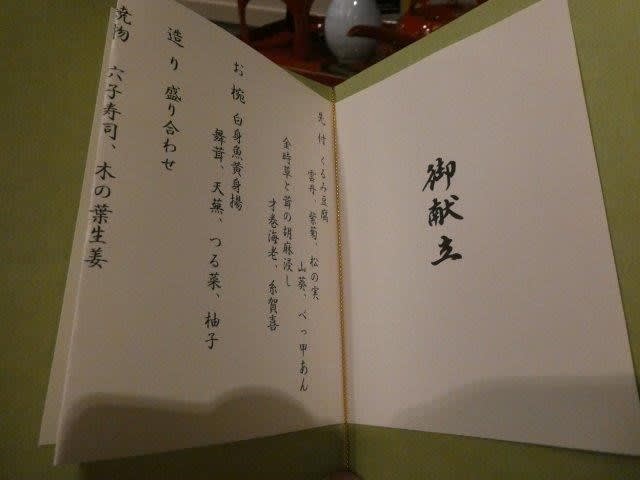 御献立
先付 くるみ豆腐
雲丹、紫菊、松の実
山葵、べっ甲あん
金時草と茸の胡麻浸し
才巻海老、糸賀喜
お椀 白身魚黄身揚
舞茸、天蕪、つる菜、柚子
造り 盛り合わせ
焼物 六子寿司、木の葉生姜